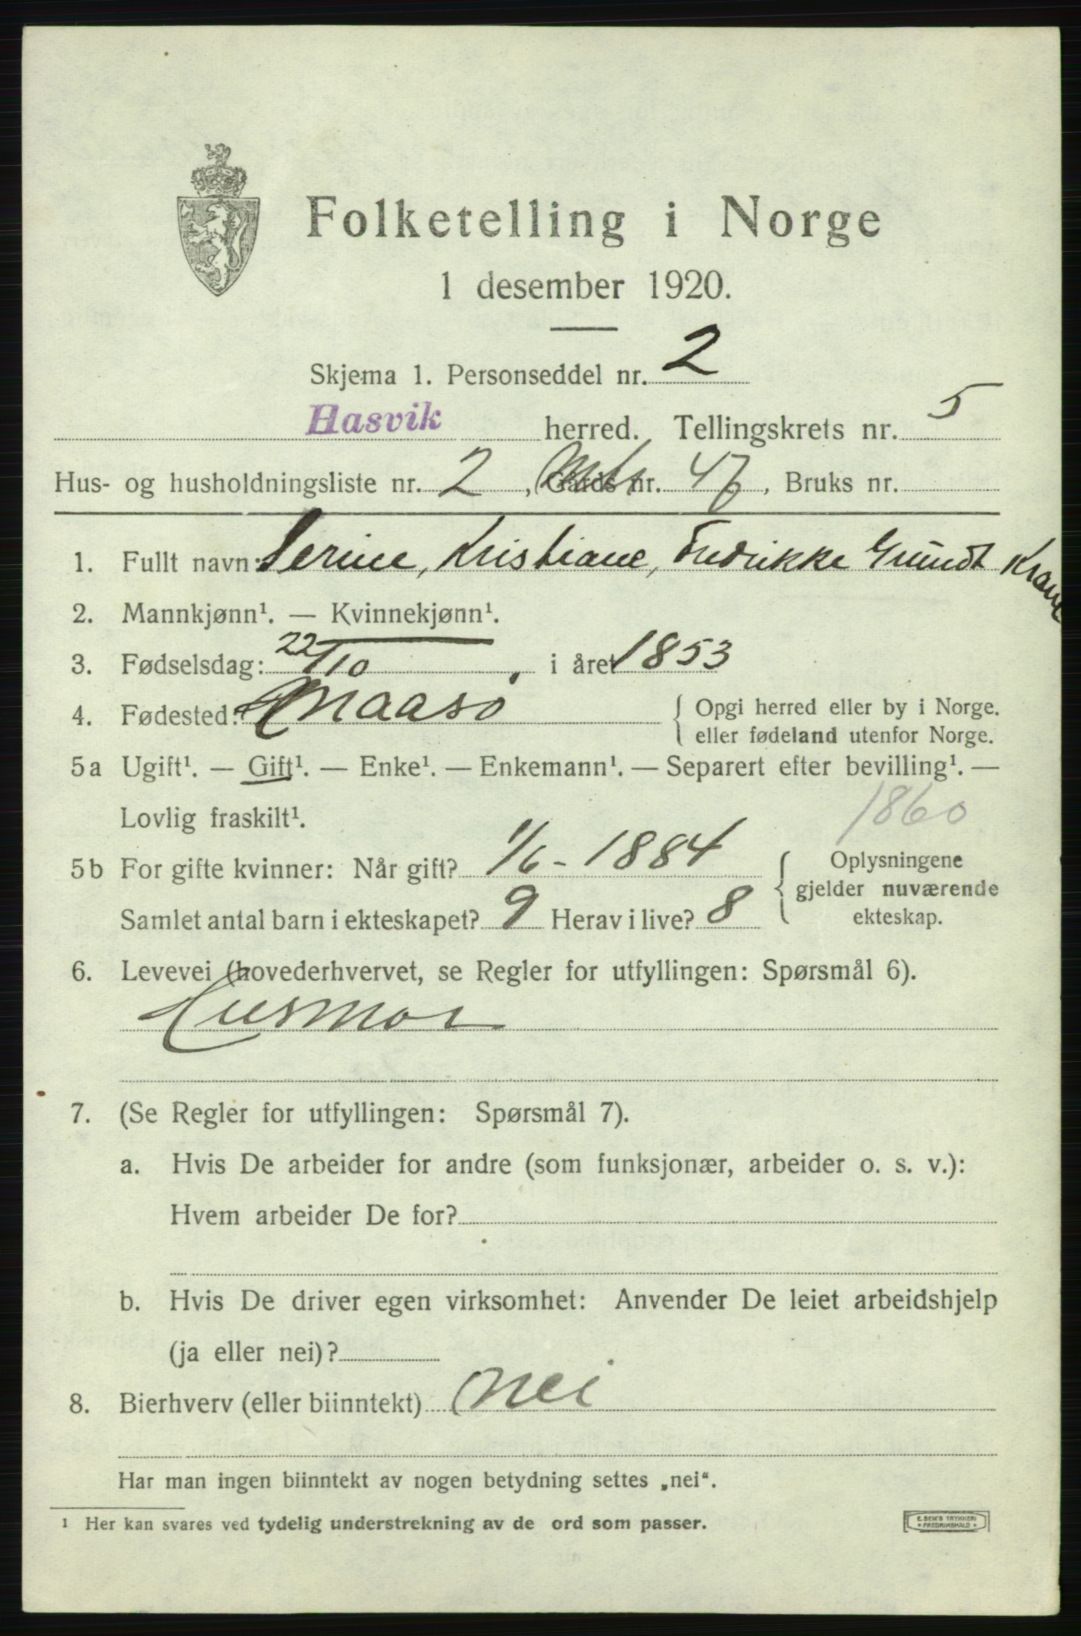 Folketelling i Norge
1 desember 1920.
Skjema 1. Personseddel nr. 2
Hasvik herred. Tellingskrets nr. 5
Hus- og husholdningsliste nr. 2, Gårds nr. 47, Bruks nr.
1. Fullt navn: Serine, Kristiane, Fredrikke Grundt Krane
2. Mannkjønn¹. — Kvinnekjønn¹.
3. Fødselsdag: 22/10, i året 1853
4. Fødested: Maasø { Opgi herred eller by i Norge.
eller fødeland utenfor Norge.
5a Ugift¹. — Gift¹. — Enke¹. — Enkemann¹. — Separert efter bevilling¹. —
Lovlig fraskilt¹. 1860
5b For gifte kvinner: Når gift? 1/6 - 1884 { Oplysningene
gjelder nuværende
Samlet antal barn i ekteskapet? 9 Herav i live? 8 ekteskap.
6. Levevei (hovederhvervet, se Regler for utfyllingen: Spørsmål 6).
Husmor
7. (Se Regler for utfyllingen: Spørsmål 7).
a. Hvis De arbeider for andre (som funksjonær, arbeider o. s. v.):
Hvem arbeider De for?
b. Hvis De driver egen virksomhet: Anvender De leiet arbeidshjelp
(ja eller nei)?
8. Bierhverv (eller biinntekt) nei
Har man ingen biinntekt av nogen betydning settes „nei“.
¹ Her kan svares ved tydelig understrekning av de ord som passer.
E. SEM'S TRYKKERI
FREDRIKSHALD